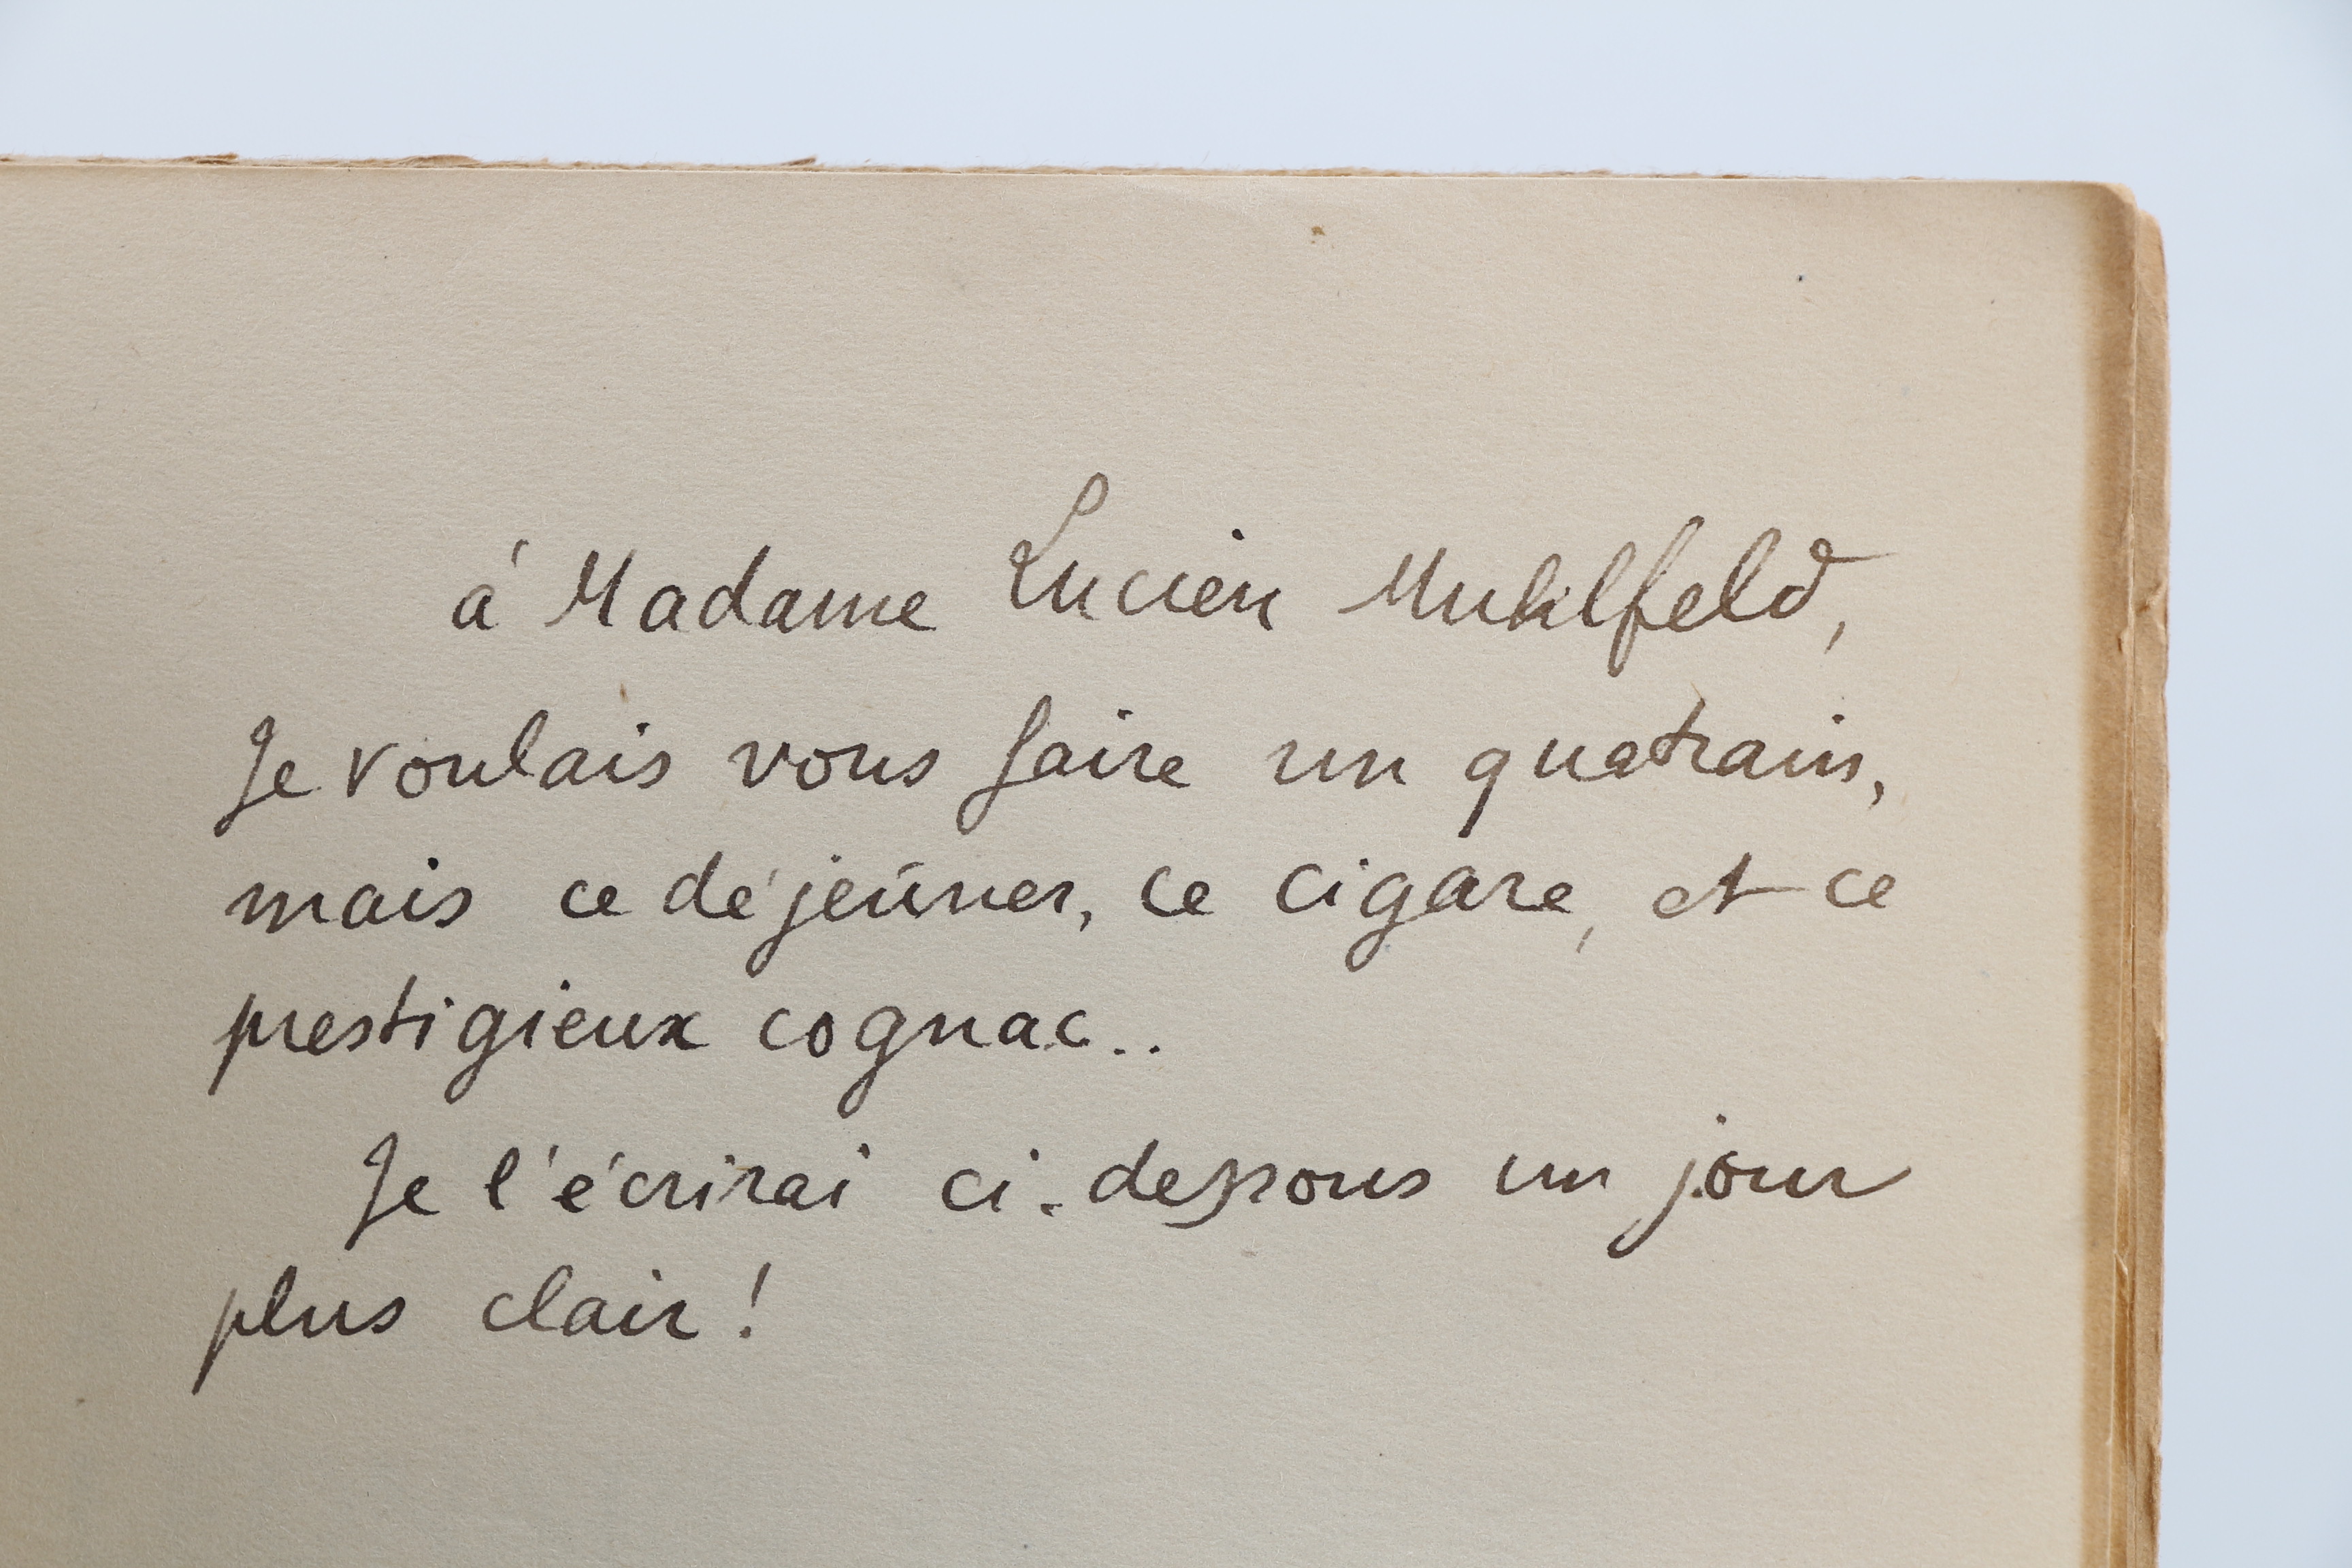 à Madame Lucien Muhlfeld,
Je voulais vous faire un quatrain,
mais ce déjeûner, ce cigare, et ce
prestigieux cognac..
Je l'écrirai ci-dessous un jour
plus clair !